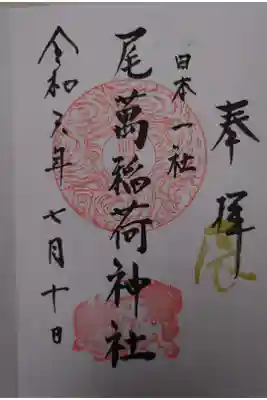 奉拝
日本一社
尾萬稲荷神社
令和六年七月十日